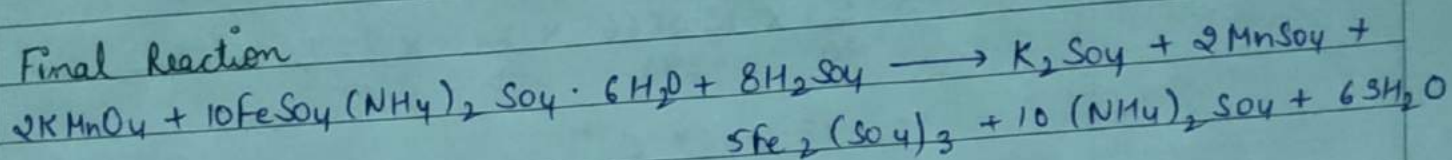 Final Reaction
2KMnO4 + 10FeSO4(NH4)2 SO4 · 6H2O + 8H2SO4 ⟶ K2SO4 + 2MnSO4 +
5Fe2(SO4)3 + 10(NH4)2 SO4 + 63H2O